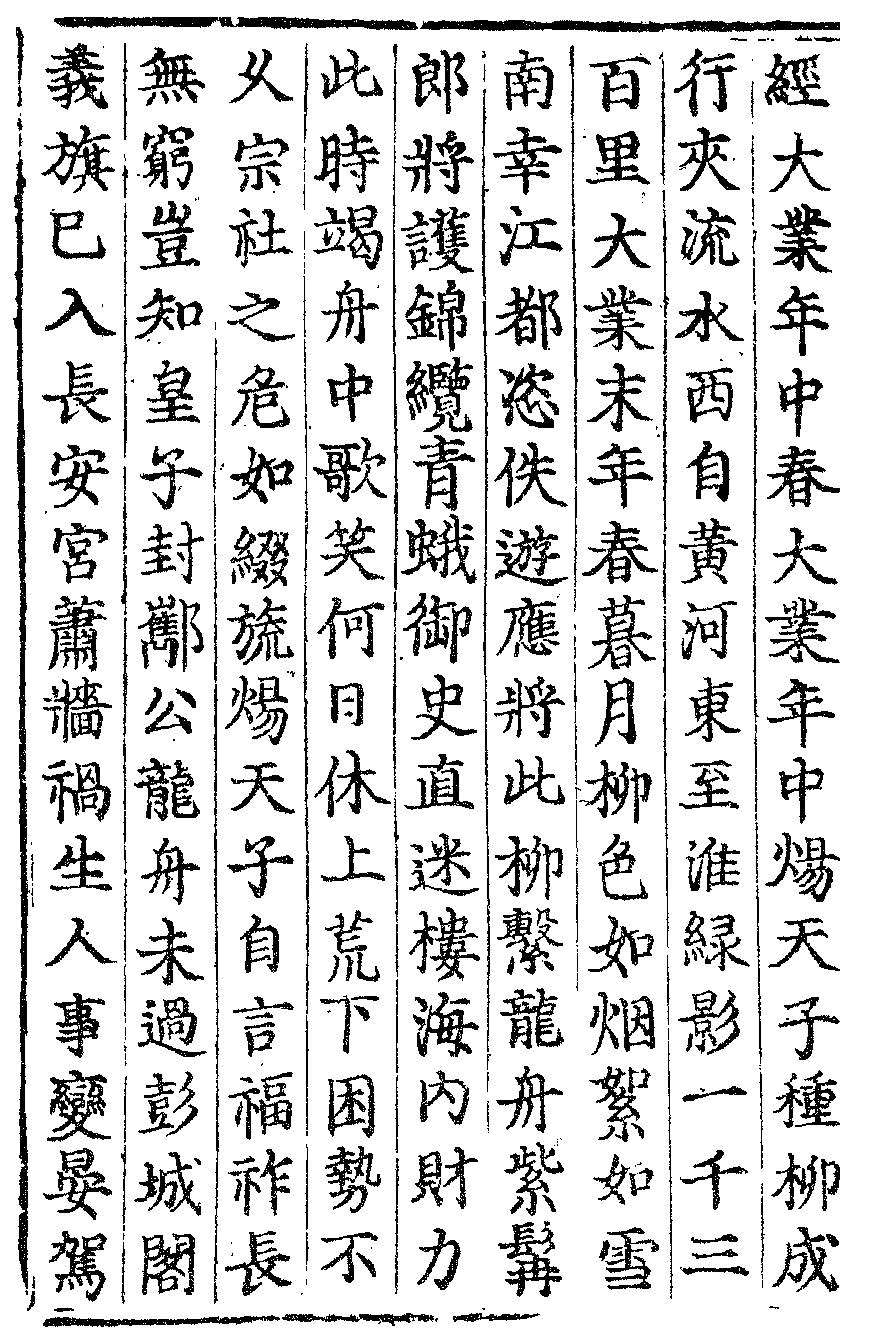 經大業年中春大業年中煬天子種柳成
行夾流水西自黄河東至淮緑影一千三
百里大業末年春暮月柳色如烟絮如雪
南幸江都恣佚遊應將此柳繫龍舟紫髯
郎將護錦纜青蛾御史直迷樓海内財力
此時竭舟中歌笑何日休上荒下困勢不
乆宗社之危如綴旒煬天子自言福祚長
無窮豈知皇子封酅公龍舟未過彭城閣
義旗已入長安宮蕭牆禍生人事變晏駕